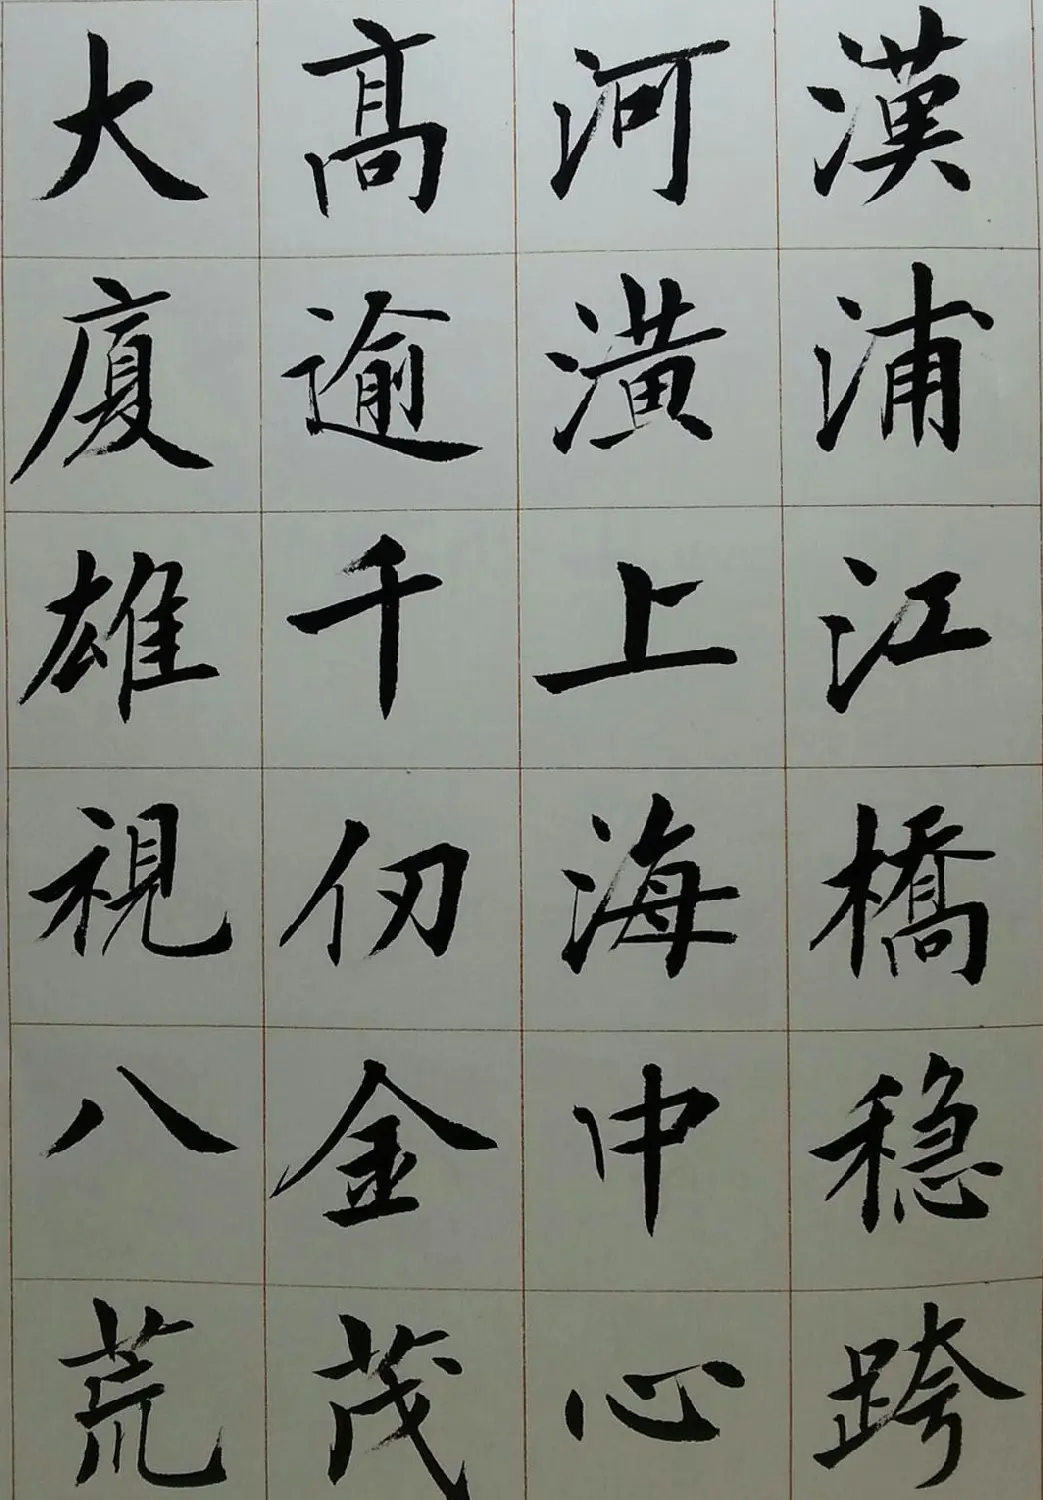 漢浦江橋穏跨
河潢上海中心
高逾千仞金茂
大廈雄視八荒